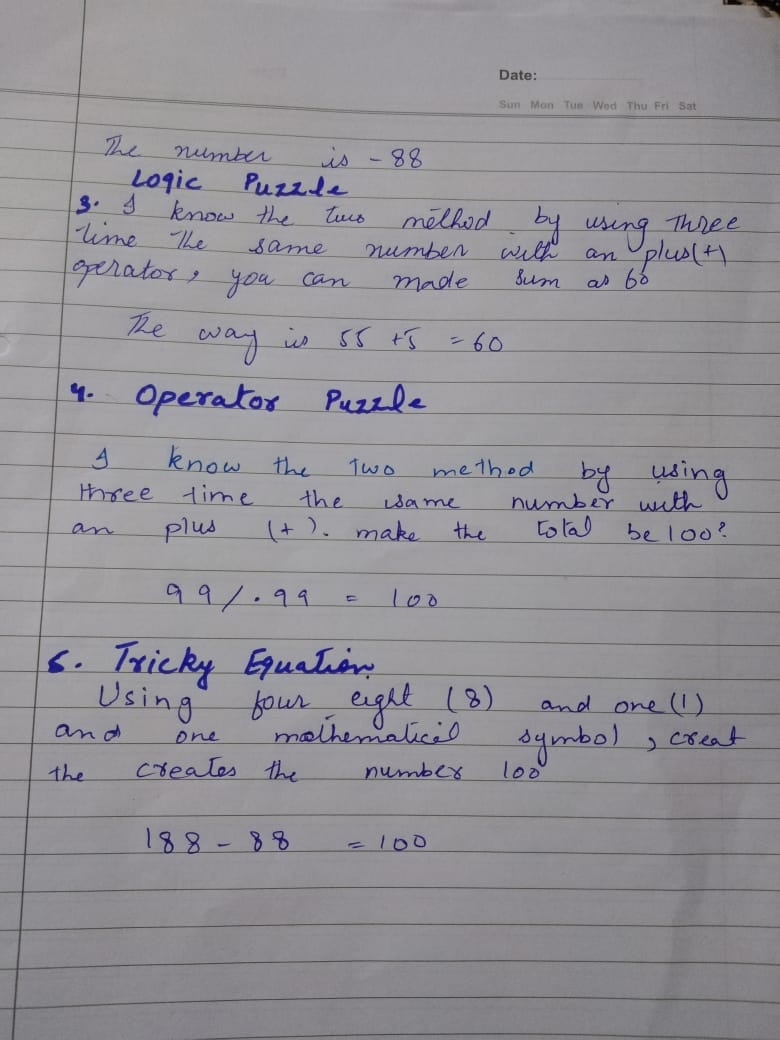 Date:
Sun Mon Tue Wed Thu Fri Sat
The number is - 88
Logic Puzzle
3. I know the two method by using Three
time The same number with an plus(+)
operator, you can made sum as 60
The way is 55 +5 = 60
4. Operator Puzzle
I know the Two method by using
three time the same number with
an plus (+). make the total be 100?
99/.99 = 100
5. Tricky Equation
Using four eight (8) and one (1)
and one mathematical symbol, creat
the creates the number 100
188 - 88 = 100